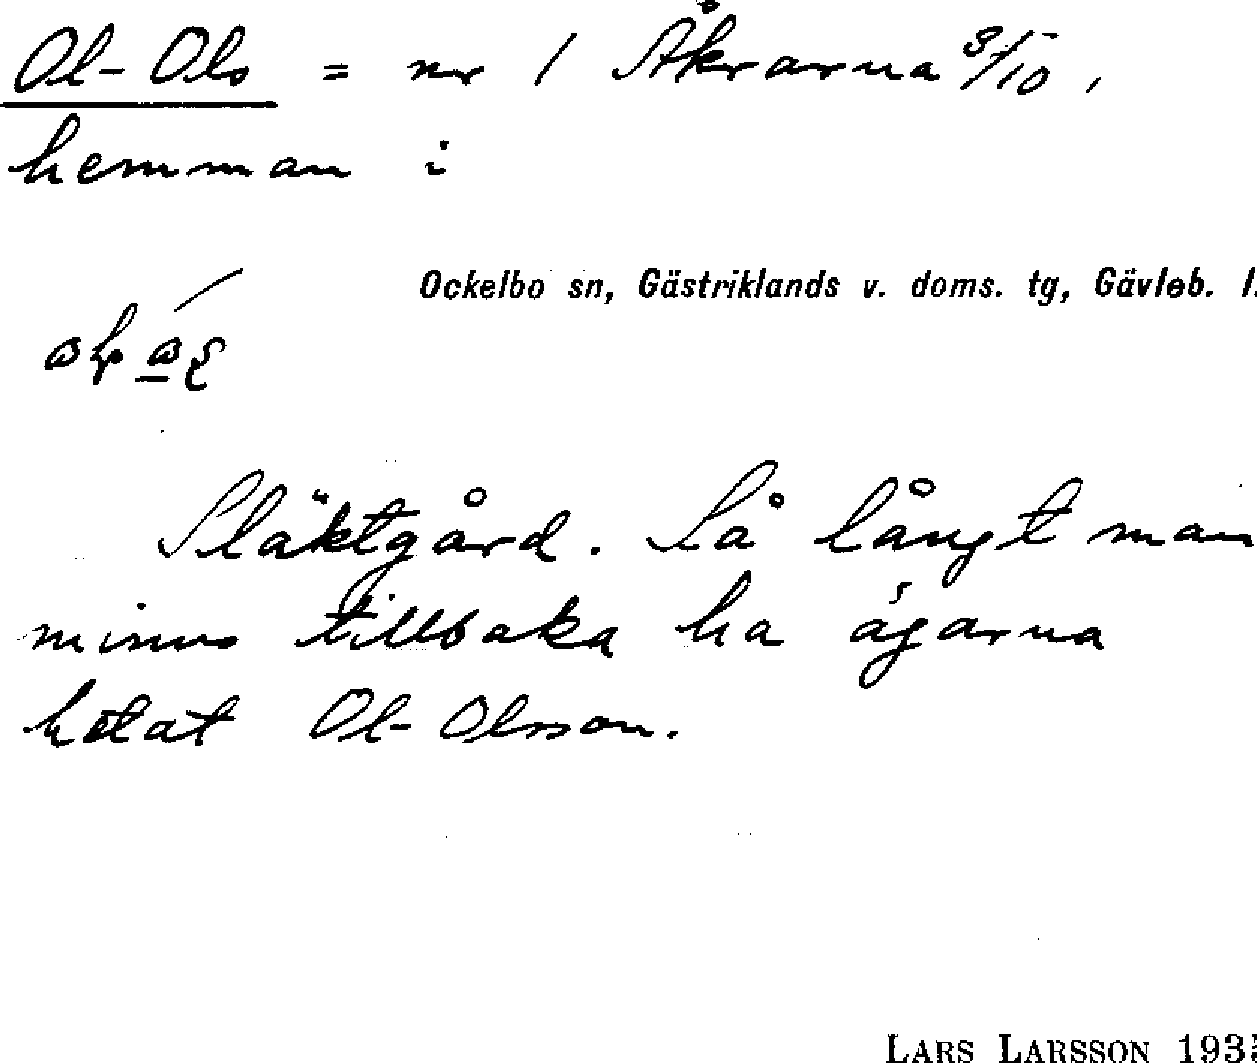 Ol-Ols = nr 1 Åkrarna 3/10,
hemman i
Ockelbo sn, Gästriklands v. doms. tg, Gävleb. l.
Släktgård. Så långt man
minns tillbaka ha ägarna
hetat Ol-Olsson.
LARS LARSSON 193